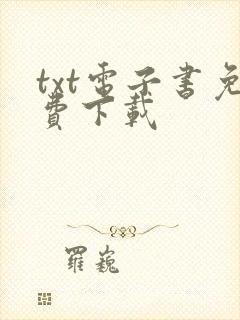 txt電子書免
費下載
羅巍